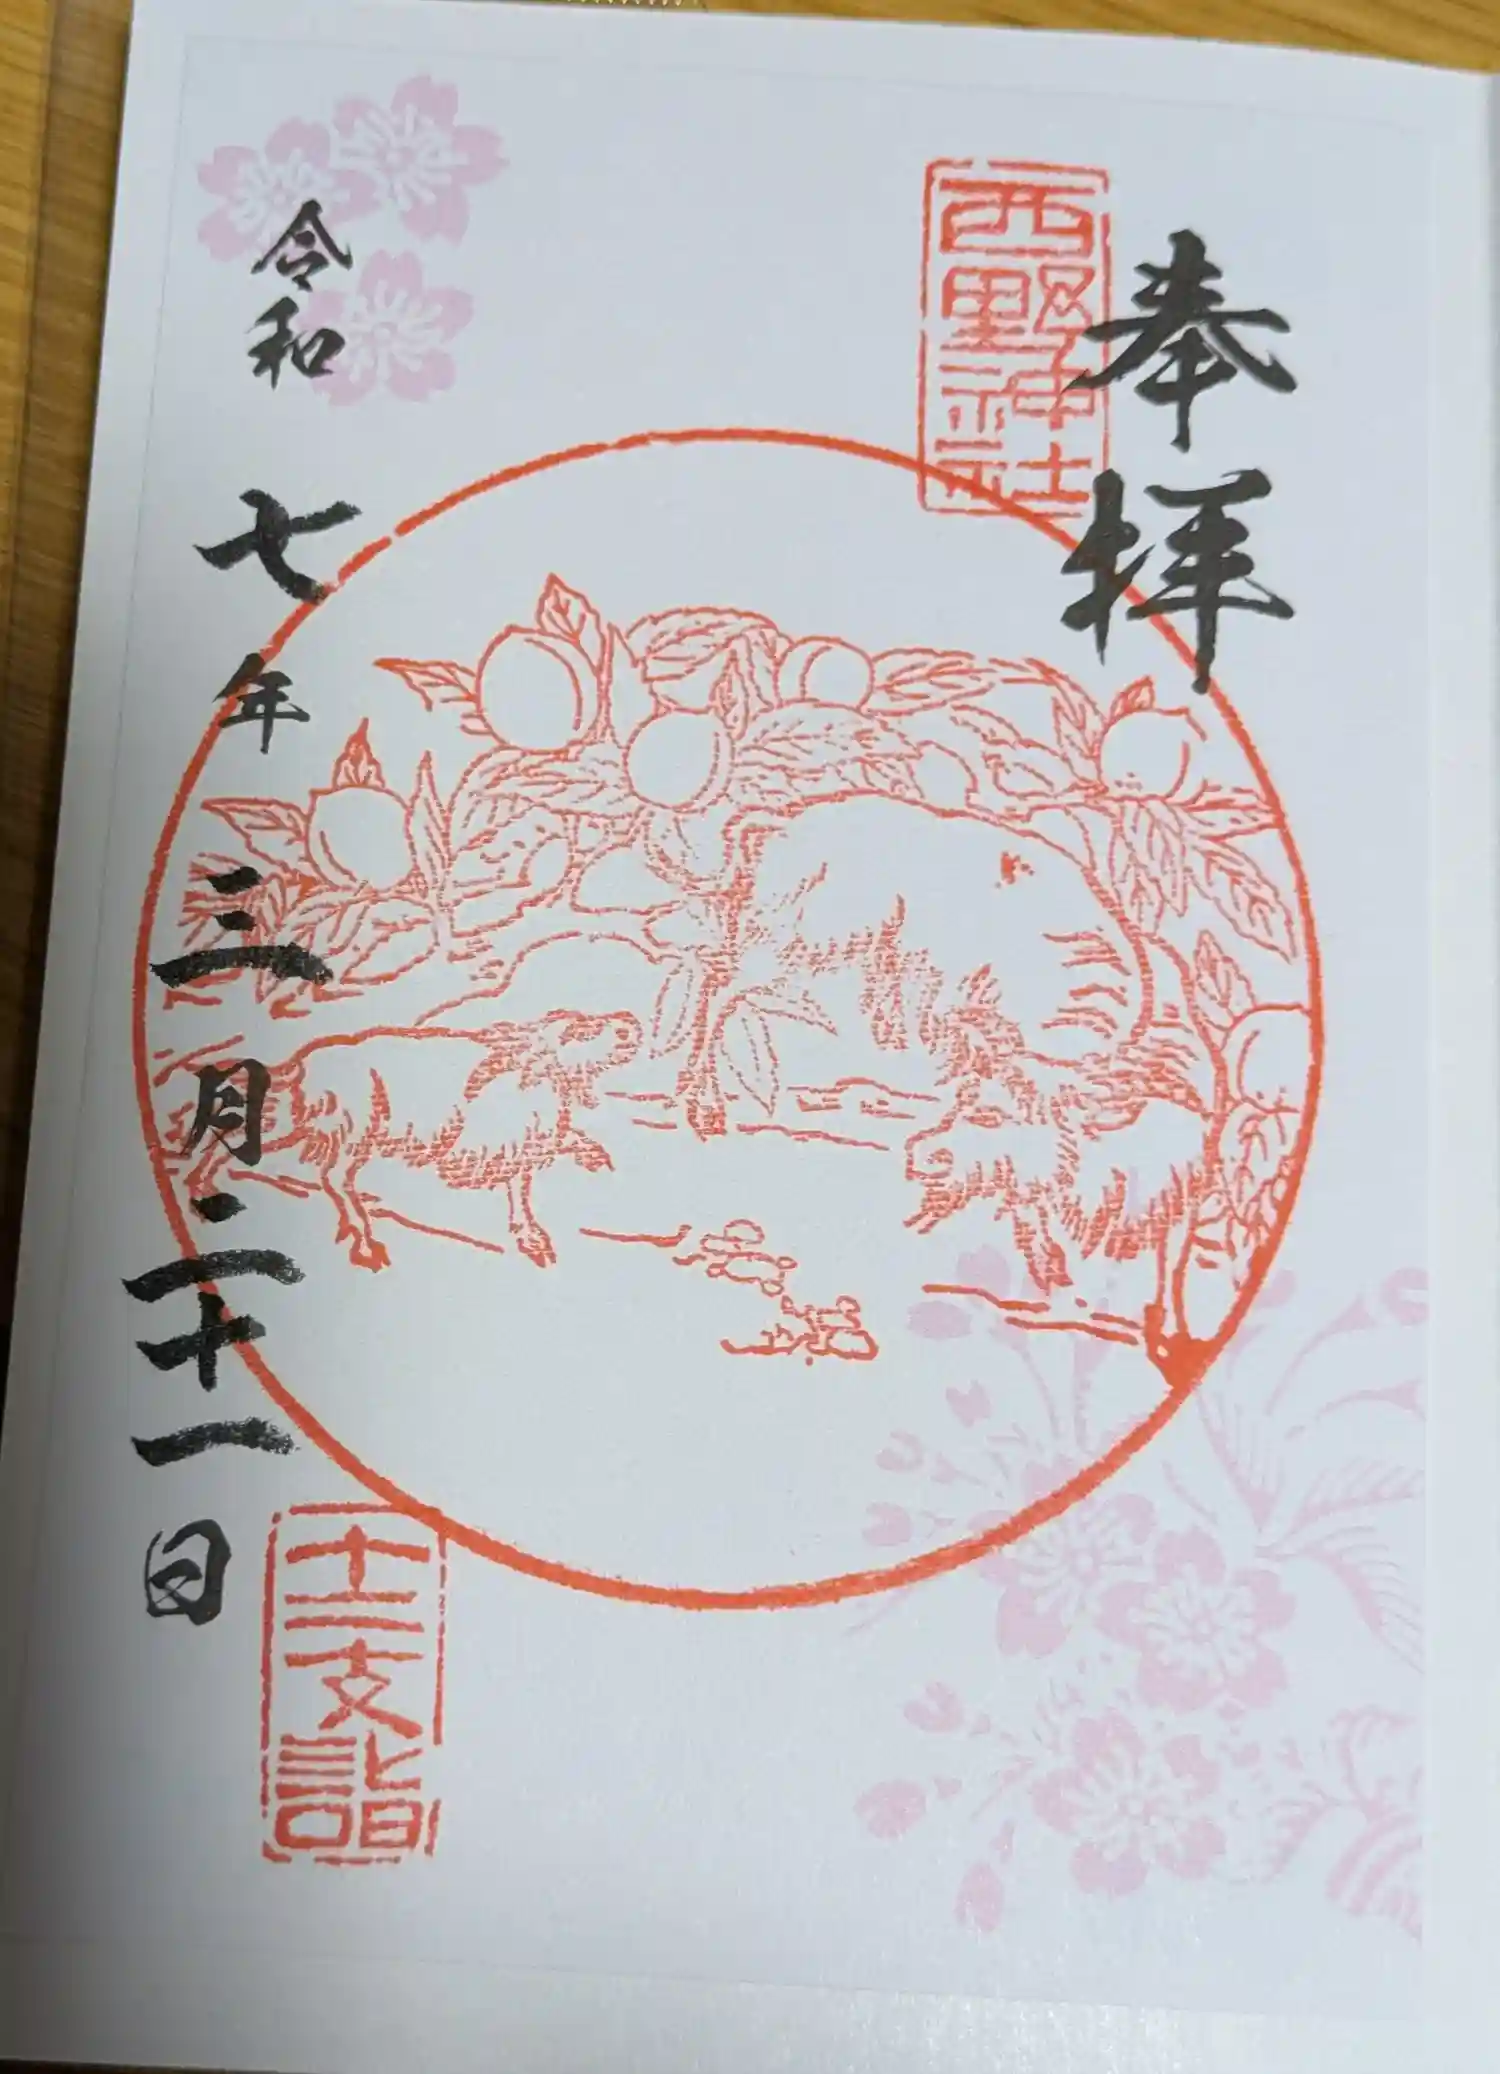 奉拝
西野神社
令和七年三月二十一日
十二支詣